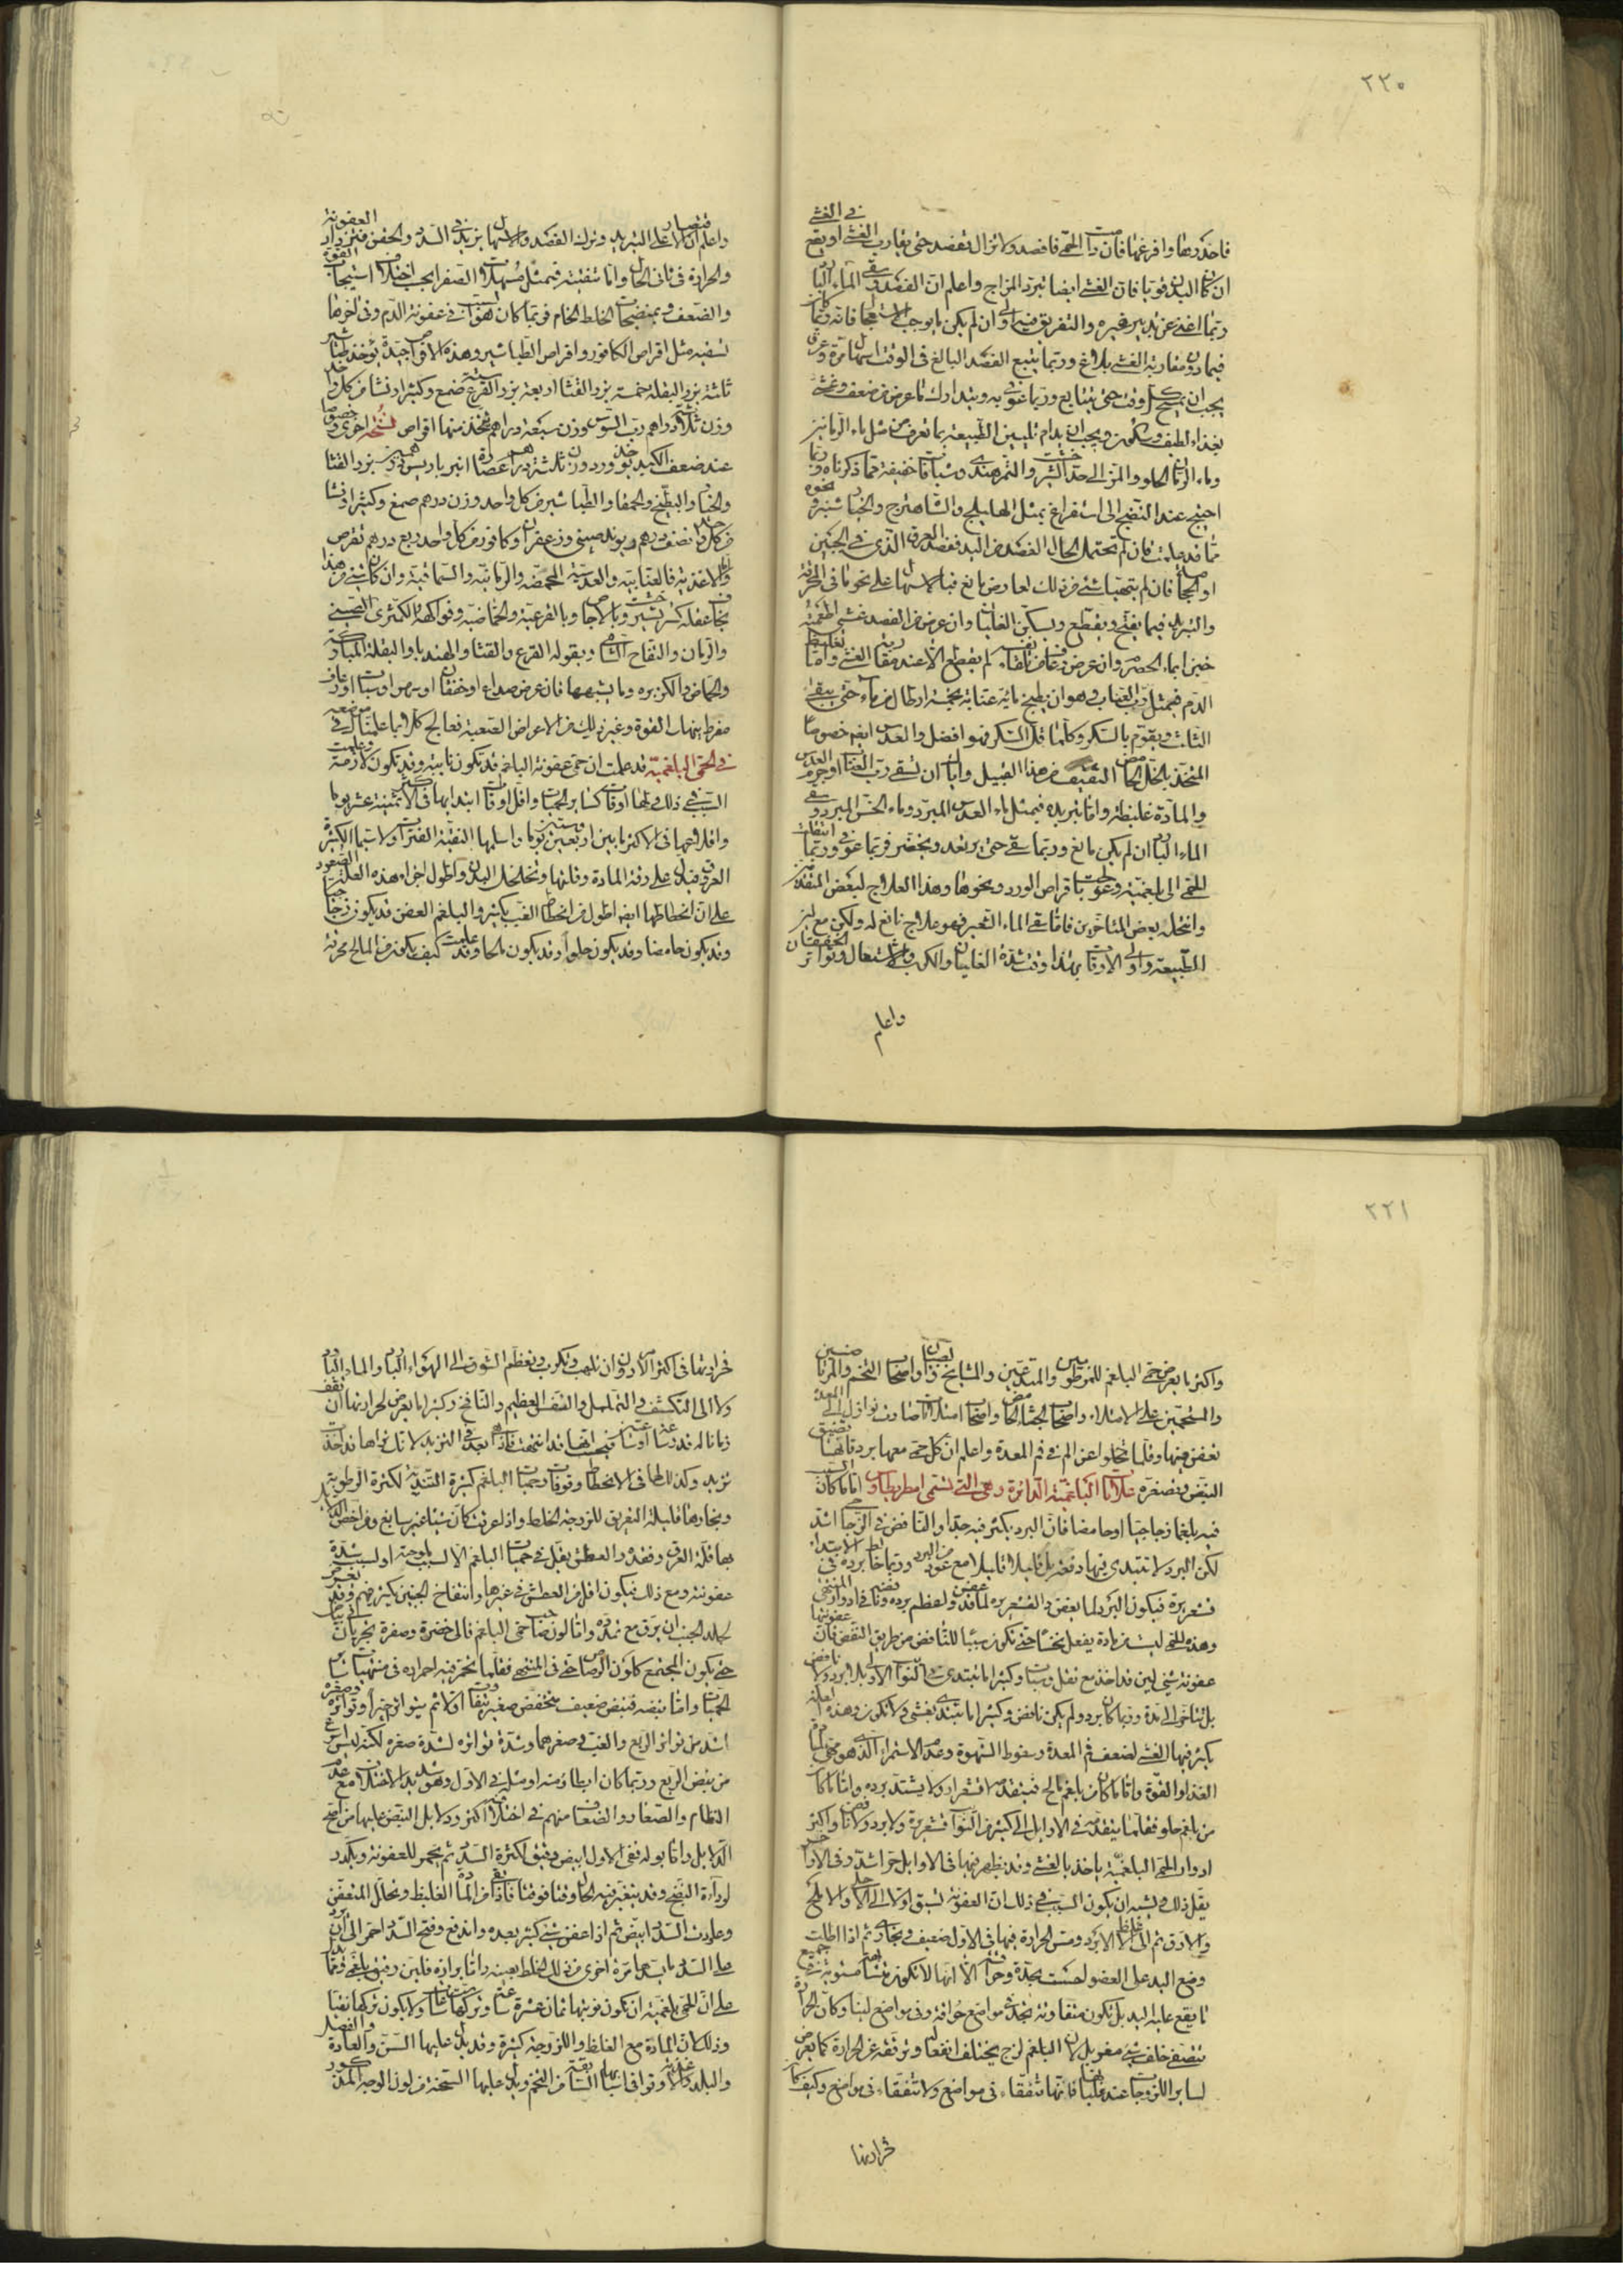 ٢٢٠
فى الغشى
فاحكدرها وافرغها فان رأت الحمى فافصد ولا تزال تفصد حتى يقارب الغشى او يقع
ان كان البدن قويا فان الغشى ايضا يبرد المزاج واعلم ان الفصد وسقى الماء البارد
ربما اغنى عن تدبير غيره والتفريق فيه اولى وان لم يكن ما يوجب الاستعجال فانه
فيما دون مقاربة الغشى بلاغ وربما يتبع الفصد البالغ فى الوقت اسهال مرة وعرق
يجب ان يمسح كل وقت حتى يتتابع وربما عوفى به ويتدارك ما عرض من ضعف وغشى
بغذاء لطيف وسكون ويجب ان يدام تليين الطبيعة بما تعرض من مثل ماء الرمانين
وماء الرمان الحلو والمز الى حد الشيرخشت والتمر هندى وشيافات خفيفة مما ذكرناه وربما
احتيج عند النضج الى استفراغ بمثل الهليلج والشاهترج والخيارشنبر ونحوه
مما قد علمت فان لم تحتمل الحال الفصد من اليد ففصد العرق الذى فى الجبين
او الحجامة فان لم يتهيأ شىء من ذلك لعارض مانع فبالاسهال على نحو ما فى المحرقة
والتبريد فيما يفتح ويقطع ويسكن الغليان وان عرض من الفصد غشى اطعمته
خبزا بماء الحصرم وان عرض رعاف نافع لم يقطع الا عند مقاربة الغشى واما تغليظ
الدم فبمثل رب العناب وهو ان يطبخ مائة عنابة بخمسة ارطال من ماء حتى يبقى
الثلث ويقوم بالسكر وكلما قل السكر فهو افضل والعدس ايضا خصوصا
المتخذ بالخل الحامض الثقيف من هذا القبيل واياك ان تسقى رب العناب او جرم العدس
والمادة غليظة واما تبريده فبمثل ماء العدس المبرد وماء الخس المبرد وسقى
الماء البارد ان لم يكن مانع وربما سقى حتى يرتعد ويخضر فربما عوفى وربما انتقلت
الحمى الى بلغمية وعولجت باقراص الورد ونحوها وهذا العلاج لبعض المتقدمين
وانتحله بعض المتأخرين فاما سقى الماء الشعير فهو علاج نافع له ولكن مع لين
الطبيعة واولى الاوقات بهذا وقت شدة الغليان والكرب والاشتعال وتواتر الخفقان
واعلم
واعلم ان الاقتصار على التبريد وترك الفصد والاسهال يزيد فى السدد والحقن فيزداد العفونة
والحرارة فى ثانى الحال واما تنقيته فبمثل مسهلات الصفرا بحسب اختلاف استيجاب القوة
والضعف وبمنضجات الخلط الخام فربما كان هو السبب فى عفونة الدم وفى اخرها
تسقيه مثل اقراص الكافور واقراص الطباشير وهذه الاقراص جيدة يؤخذ طباشير
ثلثة بزر البقلة خمسة بزر القثا اربعة بزر القرع ستة صمغ وكثيرا ونشا من كل واحد
وزن ثلثة دراهم رب السوس وزن سبعة دراهم يتخذ منها اقراص نسخة اخرى وخصوصا
عند ضعف الكبد يؤخذ ورد وزن ثلثة دراهم عصارة امبرباريس درهمين وبزر القثا
والخيار والبطيخ والحمقا والطباشير من كل واحد وزن درهم صمغ وكثيرا ونشا
من كل واحد نصف درهم ريوند صينى وزعفران وكافور من كل واحد ربع درهم تقرص
واما الاغذية فالعنابية والعدسية المحمضة والرمانية والسماقية وان كان شىء من هذا
يخاف عقله كسر بشيرخشت وبالاجاص وبالقرعية والحماضية وفواكهه الكمثرى الصينى
والرمان والتفاح الشامى وبقوله القرع والقثا والهندبا والبقلة المباركة
والحماض والكزبره وما يشبهها فان عرض صداع او خفقان او مرص او سبات او رعاف
مفرط بنهك القوة وغير ذلك من الاعراض الصعبة فعالج كلا بما علمناك فى موضعه
فى الحمى البلغمية قد علمت ان حمى عفونة البلغم قد تكون نايبة وقد تكون لازمة وعلمت
السبب فى ذلك ولها اوقات كساير الحميات واقل اوقات ابتدايها فى الاكثر ثمانية عشر يوما
واقلاعها فى الاكثر ما بين اربعين وستين يوما واسلمها النقية الفترات ولا سيما الكثيرة
العرق فيدل على رقة المادة وقلتها وتخلخل البدن واطول اجزاء هذه العلة الصعود
على ان انحطاطها ايضا اطول من انحطاط الغب بكثير والبلغم العفن قد يكون زجاجيا
وقد يكون حامضا وقد يكون حلوا وقد يكون مالحا وقد علمت كيف يكون من المالح محرقة
٢٢١
واكثر ما يعرض حمى البلغم للمرطوبين والمتدعين والمشايخ والصبيان واصحاب التخم والمرتاضين
والمستحمين على الامتلاء واصحاب الجشاء الحامض واصحاب امتلاءات صارت نوازل الى المعدة
تعفن فيها وقلما تخلوا عن الم فى فم المعدة واعلم ان كل حمى معها برد فانها تضيق
النبض وتصغره علامات البلغمية الدائرة وهى التى تسمى امطريطاوس اما ما كان
فيه بلغما زجاجيا او حامضا فان البرد يكثر فيه جدا والنافض فى الزجاجى اشد
لكن البرد لا يبتدى فيها دفعة بل قليلا قليلا مع غور من البرد وربما خالط برده فى الابتداء
قشعريرة فيكون البرد لما يعفن والقشعريرة لما قد عفن ولعظم برده ونافضه فى ادوار المنتهى
وهذه الحمى ليست من مادة يفعل نخسا حتى تكون سببا للنافض من طريق النفض فان عفونتها
عفونة شىء لين قد اخذ مع ثقل وسبات وكثيرا ما تبتدى فى النوائب الاول بلا برد ولا نافض
بل يتاخر الى مدة وربما كان برد ولم يكن نافض وكثيرا ما تبتدى بغشى ولا تكون وهذه العلة
يكثر فيها الغشى لضعف فم المعدة وسقوط الشهوة وعدم الاستمراء الذى هو مجلب
الغذاء والقوة واما ما كان من بلغم مالح فيتقدمه اقشعرار ولا يشتد برده واما ما كان
من بلغم حلو فقلما يتقدمه فى الاوايل الى كثير من النوائب قشعريرة ولا برد ولا نافض واكثر
ادوار الحمى البلغمية ياخذ بالغشى وقد يظهر فيها فى الاوايل حر اشد وفى الاواخر
يقل ذلك ويشبه ان يكون السبب فى ذلك ان العفونة تسبق اولا الى الاحلى والاملح
والارق ثم الى الاغلظ الابرد ومس الحرارة فيها فى الاول ضعيف بخارى ثم اذا اطلت
وضع اليد على العضو لحست بحدة وحرافة الا انها لا تكون متشابهة مستوية فى جميع
ما يقع عليه اليد بل تكون متفاوتة تجدها فى مواضع حارة وفى مواضع لينا وكان الحرارة
تتصفى خلف شىء مغربل لان البلغم لزج يختلف انفعاله وترققه عن الحرارة كما يعرض
لساير اللزوجات عند غليانها فانها تتفقاء فى مواضع ولا تتفقاء فى مواضع وكيف كان
حرارتها
فحرارتها فى اكثر الامر دون ان تلهب وتكرب وتعظم الشوق الى الهواء البارد والماء البارد
ولا الى التكشف والتململ والنفس العظيم والنافخ وكثيرا ما يعرض لحرارتها ان تقف
زمانا له قدر ساعة او ساعتين فيحسب انها قد انتهت فاذا هى بعد فى التزيد لانك تراها قد اخذت
تزيد وكذلك لها فى الانحطاط وقوفات وحميات البلغم كثيرة التندية لكثرة الرطوبة
وبخارها قليلة التعريق للزوجة الخلط واذا عرقت كان شيئا غير سابغ ومن اخص الدلائل
بها قلة العرق وفقده والعطش يقل فى حميات البلغم الا لسبب ملوحته او لسبب شدة
عفونته ومع ذلك فيكون اقل من العطش فى غيرها وانتفاخ الجنبين يكثر فيهم وقد
يحيل الجنب ان يرق مع تمدد واما لون صاحب حمى البلغم فالى خضرة وصفرة يجريان
حتى يكون المجتمع كلون الرصاص حتى فى المنتهى فقلما تحمر فيه احمراره فى منتهيات ساير
الحميات واما نبضه فنبض ضعيف منخفض صغير متفاوت اولا ثم يتواتر اخيرا وتواتره وصغره
اشد من تواتر الربع والغب فى صغرهما وشدة تواتره لشدة صغره لكنه ليس اسرع
من نبض الربع وربما كان ابطا منه او مثله فى الاول وهو شديد الاختلاف مع عدم
النظام والصغار والضعاف منهم فى اختلافه اكثر ودلايل النبض عليها من اصح
الدلايل واما بوله ففى الاول ابيض رقيق لكثرة السدد ثم يحمر للعفونة ويكدر
لرداءة النضج وقد يتغير فيه الحال وقتا فوقتا فاذا نفذت المادة الغليظ وتحلل المتعفن
وعادت السدد ابيض ثم اذا عفن شىء كثير بعده واندفع وفتح السدد احمر الى ان
على السدد بابسدها مرة اخرى من ذلك الخلط بعينه واما برازه فلين رقيق بلغمى ومما يدل
على ان الحمى بلغمية ان تكون نوبتها ثمان عشرة ساعة وتركها ست ساعات ولا يكون تركها نقيا
وذلك لان المادة مع الغلظ واللزوجة كثيرة وقد يدل عليها السن والعادة والفصل
والبلد والاغذية وتوافى اسبابها السابقة من التخم ويدل عليها السحنة من لون الوجه المذكور